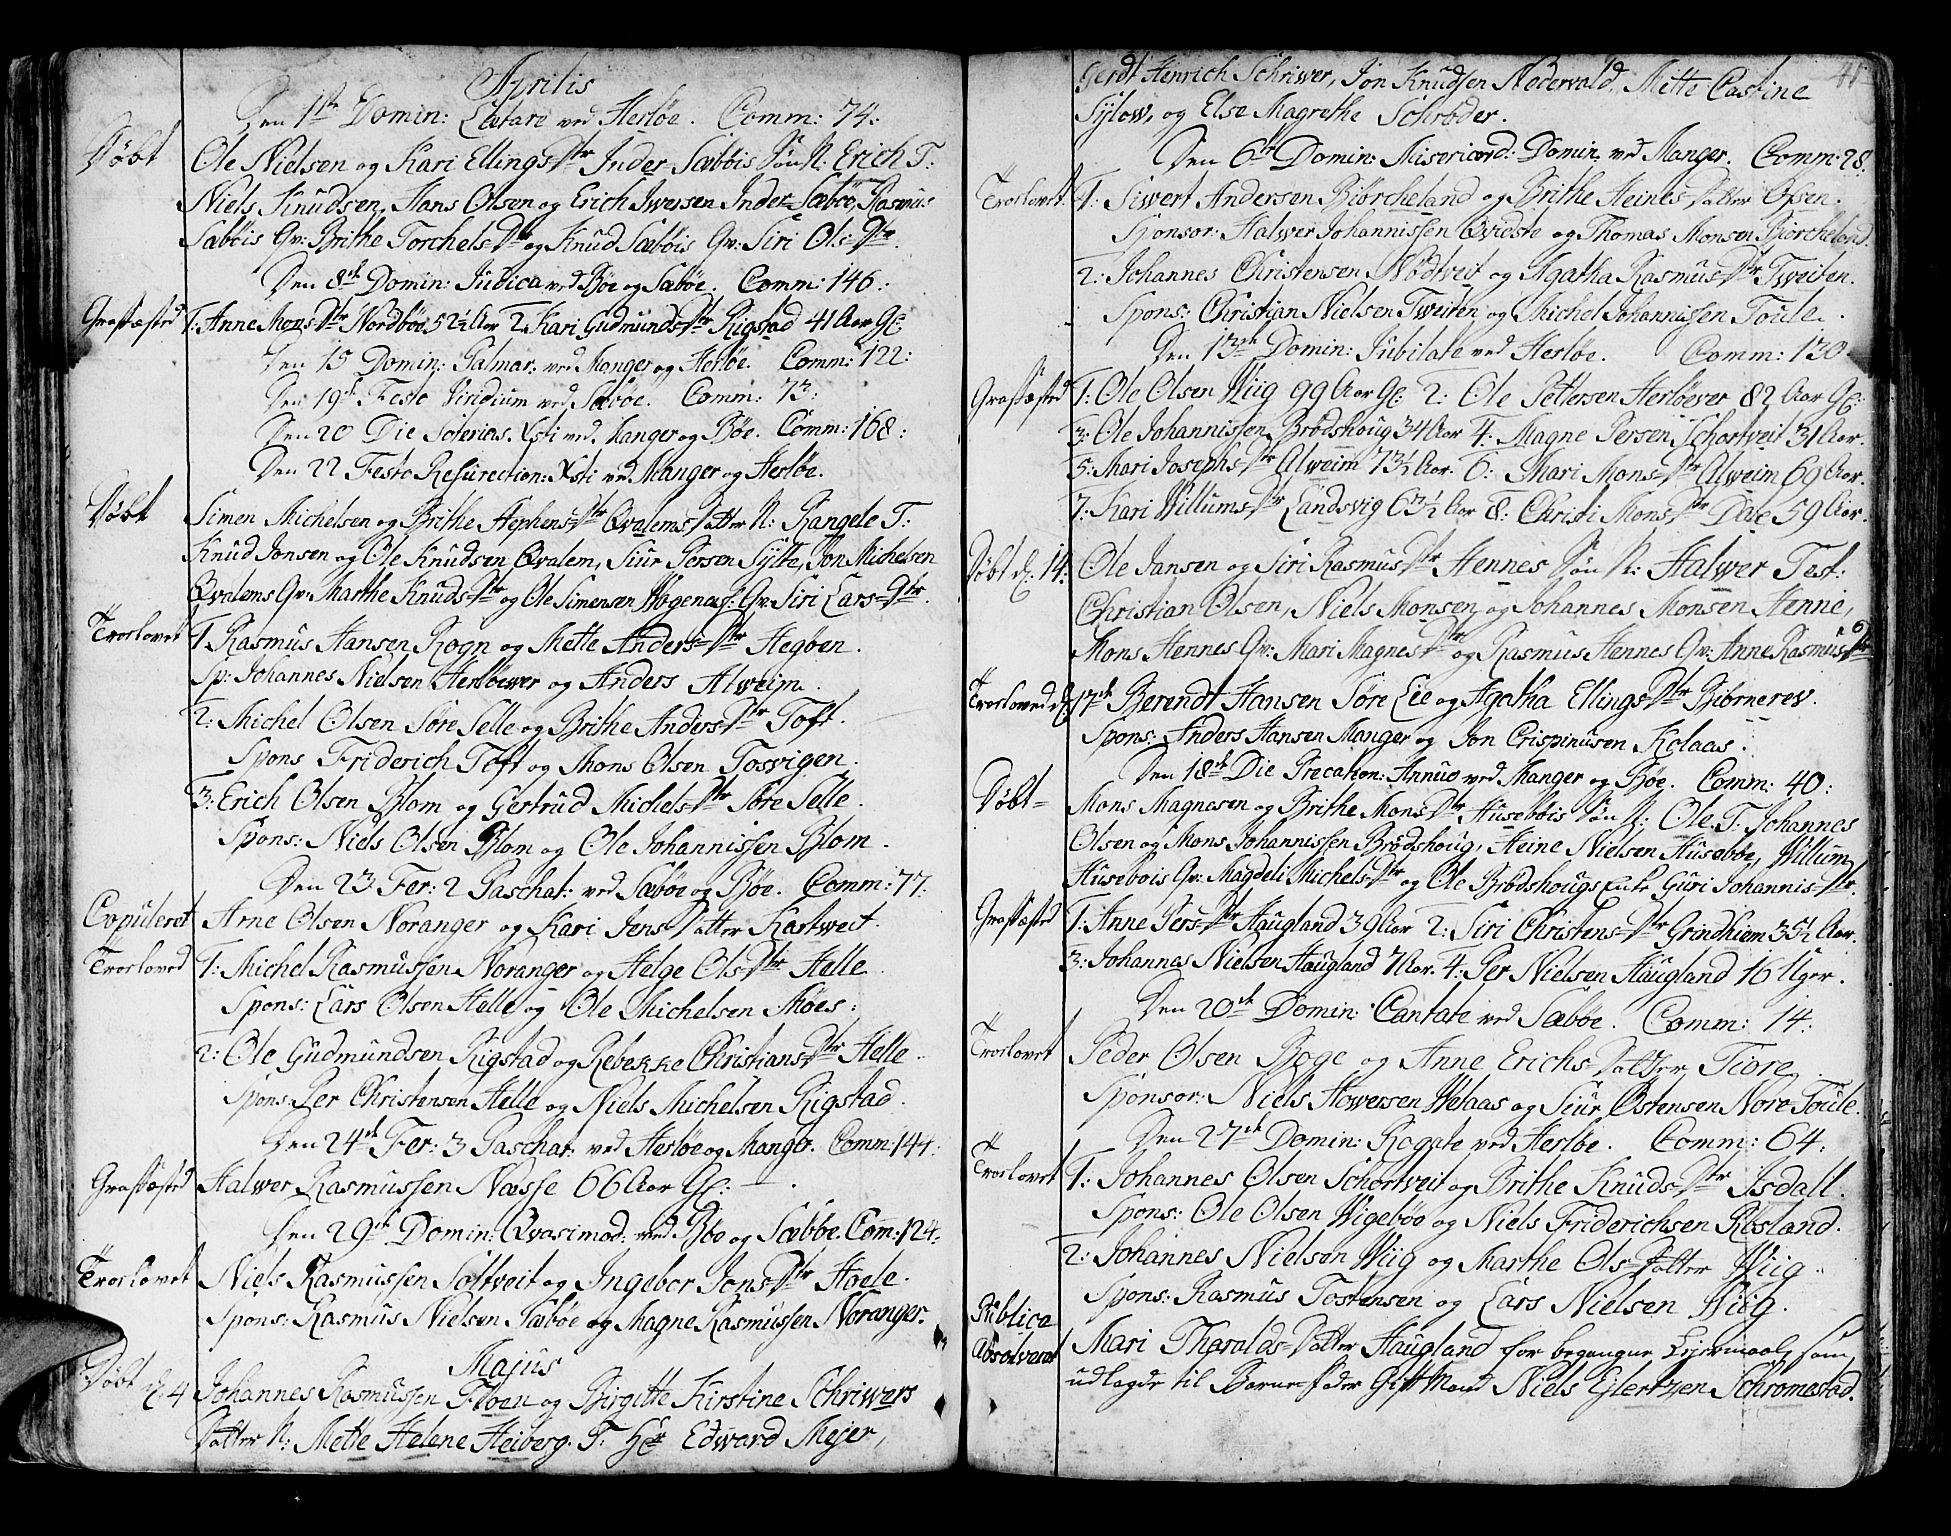 Aprilis
Den 1ste Domin: Lætare ved Herløe. Comm: 74:
Døbt Ole Nielsen og Kari Ellings Dtr Inder Sæbøis Søn N: Erich T.
Niels Knudsen, Hans Olsen og Erich Iwersen Inder Sæbøe, Rasmus
Sæbøis Qv: Brithe Torchels Dtr og Knud Sæbøis Qv: Siri Ols Dtr
Den 8de Domin: Judica ved Bøe og Sæbøe. Comm: 146:
Grafæsted 1. Anne Mons Dtr Nordbøe 52½ Aar 2. Kari Gudmunds Dtr Rigstad 41 Aar Gl:
Den 15 Domin: Palmar: ved Manger og Herløe. Comm: 122:
Den 19de Festo Viridium ved Sæbøe. Comm: 73:
Den 20 Die Soterias Xsti ved Manger og Bøe. Comm: 168:
Den 22 Festo Resurection: Xsti ved Manger og Herløe.
Døbt Simen Michelsen og Brithe Stephens Dtr Qvalems Datter N: Rangele T:
Knud Jonsen og Ole Knudsen Qvalem, Siur Persen Sylte, Jon Michelsen
Qvalems Qv: Marthe Knuds Dtr og Ole Simensen Qv: Siri Lars Dtr.
Troelovet 1. Rasmus Hansen Rogn og Mette Anders Dtr Hegøen.
Sp: Johannes Nielsen Herløewer og Anders Alweim.
2: Michel Olsen Søre Selle og Brithe Anders Dtr Toft.
Spons Friderich Toft og Mons Olsen Tosvigen.
3: Erich Olsen Blom og Gertrud Michels Dtr Søre Selle.
Spons: Niels Olsen Blom og Ole Johannissen Blom.
Den 23 Fer: 2 Paschat: ved Sæbøe og Bøe. Comm: 77.
Copuleret Arne Olsen Noranger og Kari Jens Datter Kartweit.
Troeloved 1: Michel Rasmussen Noranger og Helge Ols Dtr Helle.
Spons: Lars Olsen Helle og Ole Michelsen Møes:
2: Ole Gudmundsen Rigstad og Rebekke Christians Dtr Helle.
Spons: Per Christensen Helle og Niels Michelsen Rigstad.
Den 24de Fer: 3 Paschat: ved Herløe og Manger. Comm: 144:
Grafæsted Halwer Rasmussen Næsse 66 Aar Gl:
Den 29de Domin: Qvasimod: ved Bøe og Sæbøe. Com: 124.
Troelovet Niels Rasmussen Saltveit og Ingebor Jons Dtr Hoele.
Spons: Rasmus Nielsen Sæbøe og Magne Rasmussen Noranger.
Majus
Døbt d: 4 Johannes Rasmussen Floen og Birgitte Kirstine Schriwers
Datter N: Mette Helene Heiberg. T. Hr Edward Mejer,
41
Gerdt Hinrich Schriwer, Jon Knudsen Nederwald, Mette Castine
Sylow, og Else Magrethe Schrøder.
Den 6te Domin: Misericord: Domin ved Manger. Comm: 28.
Troelovet 1: Siwert Andersen Biørcheland og Brithe Heines Datter Ossen.
Sponsor: Halwer Johannissen Qvidste og Thomas Monsen Biørcheland.
2: Johannes Christensen Nødtveit og Agatha Rasmus Dtr Tweiten.
Spons: Christian Nielsen Tweiten og Michel Johannissen Toule.
Den 13de Domin: Jubilate ved Herløe. Comm: 130
Grafæsted 1: Ole Olsen Wiig 99 Aar Gl: 2: Ole Pettersen Herløewer 82 Aar Gl:
3: Ole Johannissen Brødshoug 34 Aar 4: Magne Persen Schortveit 31 Aar.
5: Mari Josephs Dtr Alweim 73½ Aar. 6: Mari Mons Dtr Alweim 69 Aar.
7: Kari Willums Dtr Landsvig 63½ Aar 8: Christi Mons Dtr Dale 59 Aar.
Døbt d: 14: Ole Jansen og Siri Rasmus Dtr Hennes Søn N: Halwer Test:
Christian Olsen, Niels Monsen og Johannes Monsen Henne,
Mons Hennes Qv: Mari Magnes Dtr og Rasmus Hennes Qv: Anne Rasmus Dtr
Troeloved d: 17de Berendt Hansen Søre Lie og Agatha Ellings Dtr Biørnerev.
Spons: Anders Hansen Manger og Jon Crispinusen Kolaas.
Den 18de Die Precation: Annuo ved Manger og Bøe. Comm: 40:
Døbt Mons Magnesen og Brithe Mons Dtr Husebøis Søn N: Ole. T: Johannes
Olsen og Mons Johannissen Brødshoug, Heine Nielsen Husebøe, Willum
Husebøis Qv: Magdeli Michels Dtr og Ole Brødshougs Enke Guri Johannis Dtr.
Grafæsted 1: Anne Pers Dtr Haugland 39 Aar 2: Siri Christens Dtr Grindhiem 35½ Aar.
3: Johannes Nielsen Haugland 7 Aar. 4: Per Nielsen Haugland 16 Uger.
Den 20de Domin: Cantate ved Sæbøe. Comm: 14:
Troelovet Peder Olsen Boge og Anne Erichs Datter Fiøre.
Sponsor: Niels Howersen Welaas og Siur Østensen Nore Toule.
Den 27de Domin: Rogate ved Herløe. Comm: 64:
Troelovet 1: Johannes Olsen Schortveit og Brithe Knuds Dtr Isdall.
Spons: Ole Olsen Wigebøe og Niels Friderichsen Rosland.
2: Johannes Nielsen Wiig og Marthe Ols Datter Wiig.
Spons: Rasmus Tostensen og Lars Nielsen Wiig.
Publice
Absolveret Mari Tharalds Datter Haugland for begangne Leiermaal, som
udlagde til Barne Fader Gift Mand Niels Ejlertsen Schromestad.